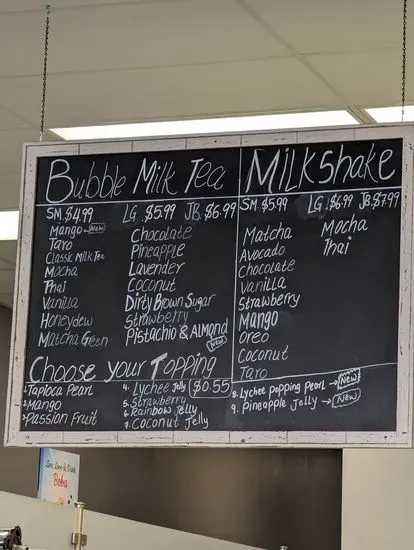 Bubble Milk Tea
SM. $4.99 LG. $5.99 JB. $6.99
Mango - New
Taro
Classic Milk Tea
Mocha
Thai
Vanilla
Honeydew
Matcha Green
Chocolate
Pineapple
Lavender
Coconut
Dirty Brown Sugar
Strawberry
Pistachio & Almond
New
Milkshake
SM. $5.99 LG. $6.99 JB. $7.99
Matcha
Avocado
Chocolate
Vanilla
Strawberry
Mango
Oreo
Coconut
Taro
Mocha
Thai
Choose your Topping
$0.55
1. Tapioca Pearl
2. Mango
3. Passion Fruit
4. Lychee Jelly
5. Strawberry
6. Rainbow Jelly
7. Coconut Jelly
8. Lychee popping pearl → New
9. Pineapple Jelly → New
Live, Love & Drink
Boba